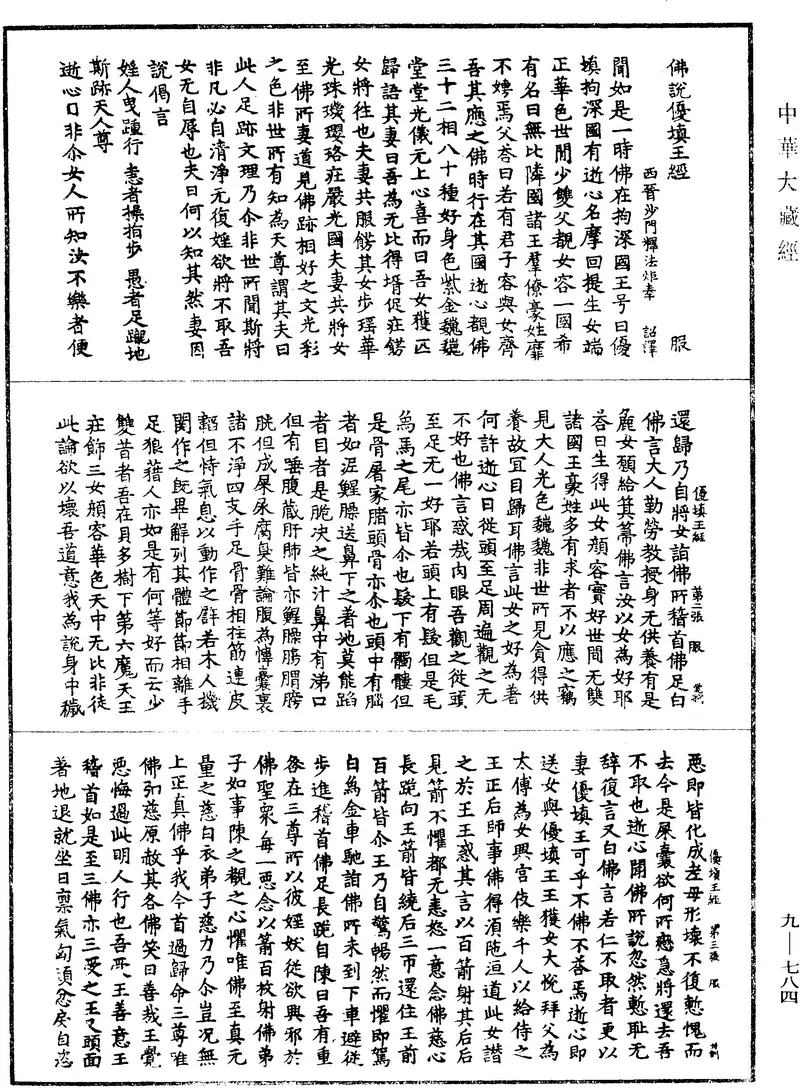 中華大藏經
佛說優填王經　服
西晉沙門釋法炬奉　詔譯
聞如是一時佛在拘深國王号曰優
填拘深國有逝心名摩回提生女端
正華色世間少雙父覩女容一國希
有名曰無比隣國諸王羣僚豪姓靡
不娉焉父荅曰若有君子容與女齊
吾其應之佛時行在其國逝心覩佛
三十二相八十種好身色紫金巍巍
堂堂光儀无上心喜而曰吾女獲匹
歸語其妻曰吾為无比得壻促莊飾
女將往也夫妻共服飾其女步瑶華
光珠璣瓔珞莊嚴光國夫妻共將女
至佛所妻道見佛跡相好之文光彩
之色非世所有知為天尊謂其夫曰
此人足跡文理乃尒非世所聞斯將
非凡必自清淨无復婬欲將不取吾
女无自辱也夫曰何以知其然妻因
說偈言
婬人曳踵行　恚者操指步　愚者足蹴地
斯跡天人尊
逝心曰非尒女人所知汝不樂者便
優填王經　第二張　服
還歸乃自將女詣佛所稽首佛足白
佛言大人勤勞教授身无供養有是
麁女願給箕箒佛言汝以女為好耶
荅曰生得此女顏容實好世間无雙
諸國王豪姓多有求者不以應之竊
見大人光色巍巍非世所見貪得供
養故冝自歸耳佛言此女之好為著
何許逝心曰從頭至足周遍觀之无
不好也佛言惑哉肉眼吾觀之從頭
至足无一好耶若頭上有髮但是毛
烏馬之尾亦皆尒也髮下有髑髏但
是骨屠家猪頭骨亦尒也頭中有腦
者如泥鯹臊逆鼻下之著地莫能蹈
者目者是脃決之純汁鼻中有涕口
但有唾腹蔵肝肺皆亦鯹臊膓胃膀
胱但成屎㞙腐臭難論腹為㡧囊裹
諸不淨四支手足骨骨相拄筋連皮
韜但恃氣息以動作之辟若木人機
関作之旣畢解列其體節節相離手
足狼藉人亦如是有何等好而云少
雙昔者吾在貝多樹下第六魔天王
莊飾三女顔容華色天中无比非徒
此論欲以壞吾道意我為說身中穢
優填王經　第三張　服
惡即皆化成老母形壞不復慙愧而
去今是屎囊欲何所㦥急將還去吾
不取也逝心聞佛所說忽然慙耻无
辞復言又白佛言若仁不取者更以
妻優填王可乎不佛不荅焉逝心即
送女與優填王王獲女大悅拜父為
太傅為女興宮伎樂千人以給侍之
王正后師事佛得湏陁洹道此女譖
之於王王惑其言以百箭射其后后
見箭不懼都无恚怒一意念佛慈心
長跪向王箭皆繞后三帀還住王前
百箭皆尒王乃自驚惕然而懼即駕
白烏金車馳詣佛所未到下車避從
步進稽首佛足長跪自陳曰吾有重
咎在三尊所以彼婬妖從欲興邪於
佛聖衆每一惡念以箭百枚射佛弟
子如事陳之觀之心懼唯佛至真无
量之慈白衣弟子慈力乃尒豈况無
上正真佛乎我今首過歸命三尊唯
佛弘慈原赦其各佛笑曰善哉王覺
惡悔過此明人行也吾受王善意王
稽首如是至三佛亦三受之王又頭面
著地退就坐曰禀氣匈頑忿戾自恣
九—七八四